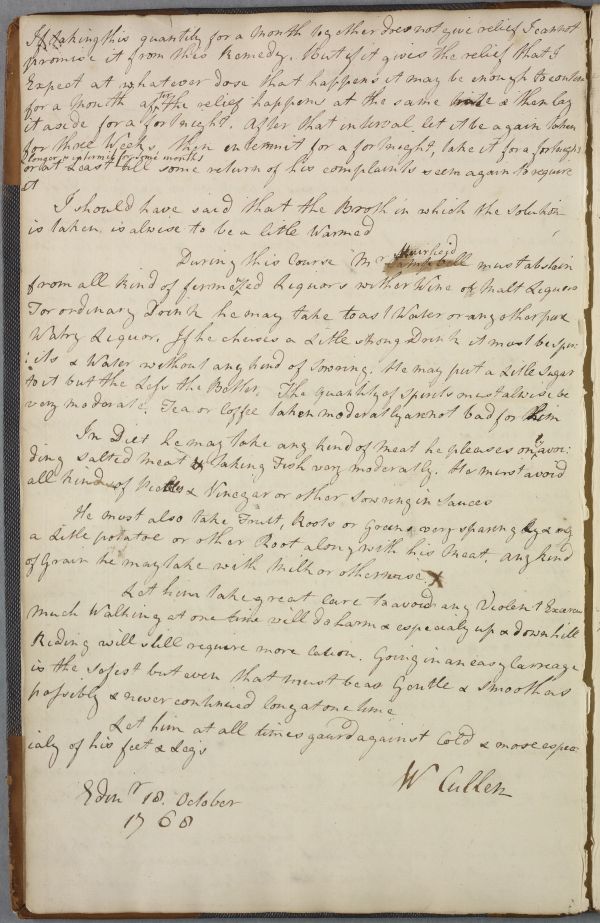 If taking this quantity for a Month together does not give relief I cannot
promise it from this Remedy. But if it gives the relief that I
Expect at whatever dose that happens it may be enough to continue
for a Month after the relief happens at the same & then lay
it aside for a fortnieght. After that interval let it be again taken
for three Weeks, then intermit for a fortnieght, take it for a fortnieght
& longer intermit for some months
or at Least till some return of his complaints seem again to require
it
I should have said that the Broth in which the Solution
is taken is alwise to be a little Warmed
Muirhead
During this Course Mr must abstain
from all kind of fermented Liquors wither Wine or Malt Liquors
For ordinary Drink he may take toast Water or any other pure
Watry Liquor. If he chuses a Litle strong Drink it must be spir
:its & Water without any kind of Souring. He may put a Litle Sugar
to it but the Less the Better. The Quantity of Spirits must alwise be
very moderate. Tea or Coffee taken moderately are not bad for him
In Diet he may take any kind of meat he pleases only avoi:
ding salted meat & taking Fish very moderatly. He must avoid
all kind of Pickles & Vinegar or other Souring in Sauces
He must also take Fruit, Roots or Greens very sparingly & only
a Litle potatoe or other Root along with his Meat. any kind
of Grain he may take with Milk or otherwise.
Let him take great Care to avoid any Violent Exercise
much Walking at one time will do harm & especialy up & down hill
Riding will still require more Caution. Going in an easy Carreage
is the safest but even that must be as Gentle & smooth as
possibly & never continued long at one time
Let him at all times gaurd against Cold & more espec
ialy of his feet & Legs
W Cullen
Edinr 18. October
1768